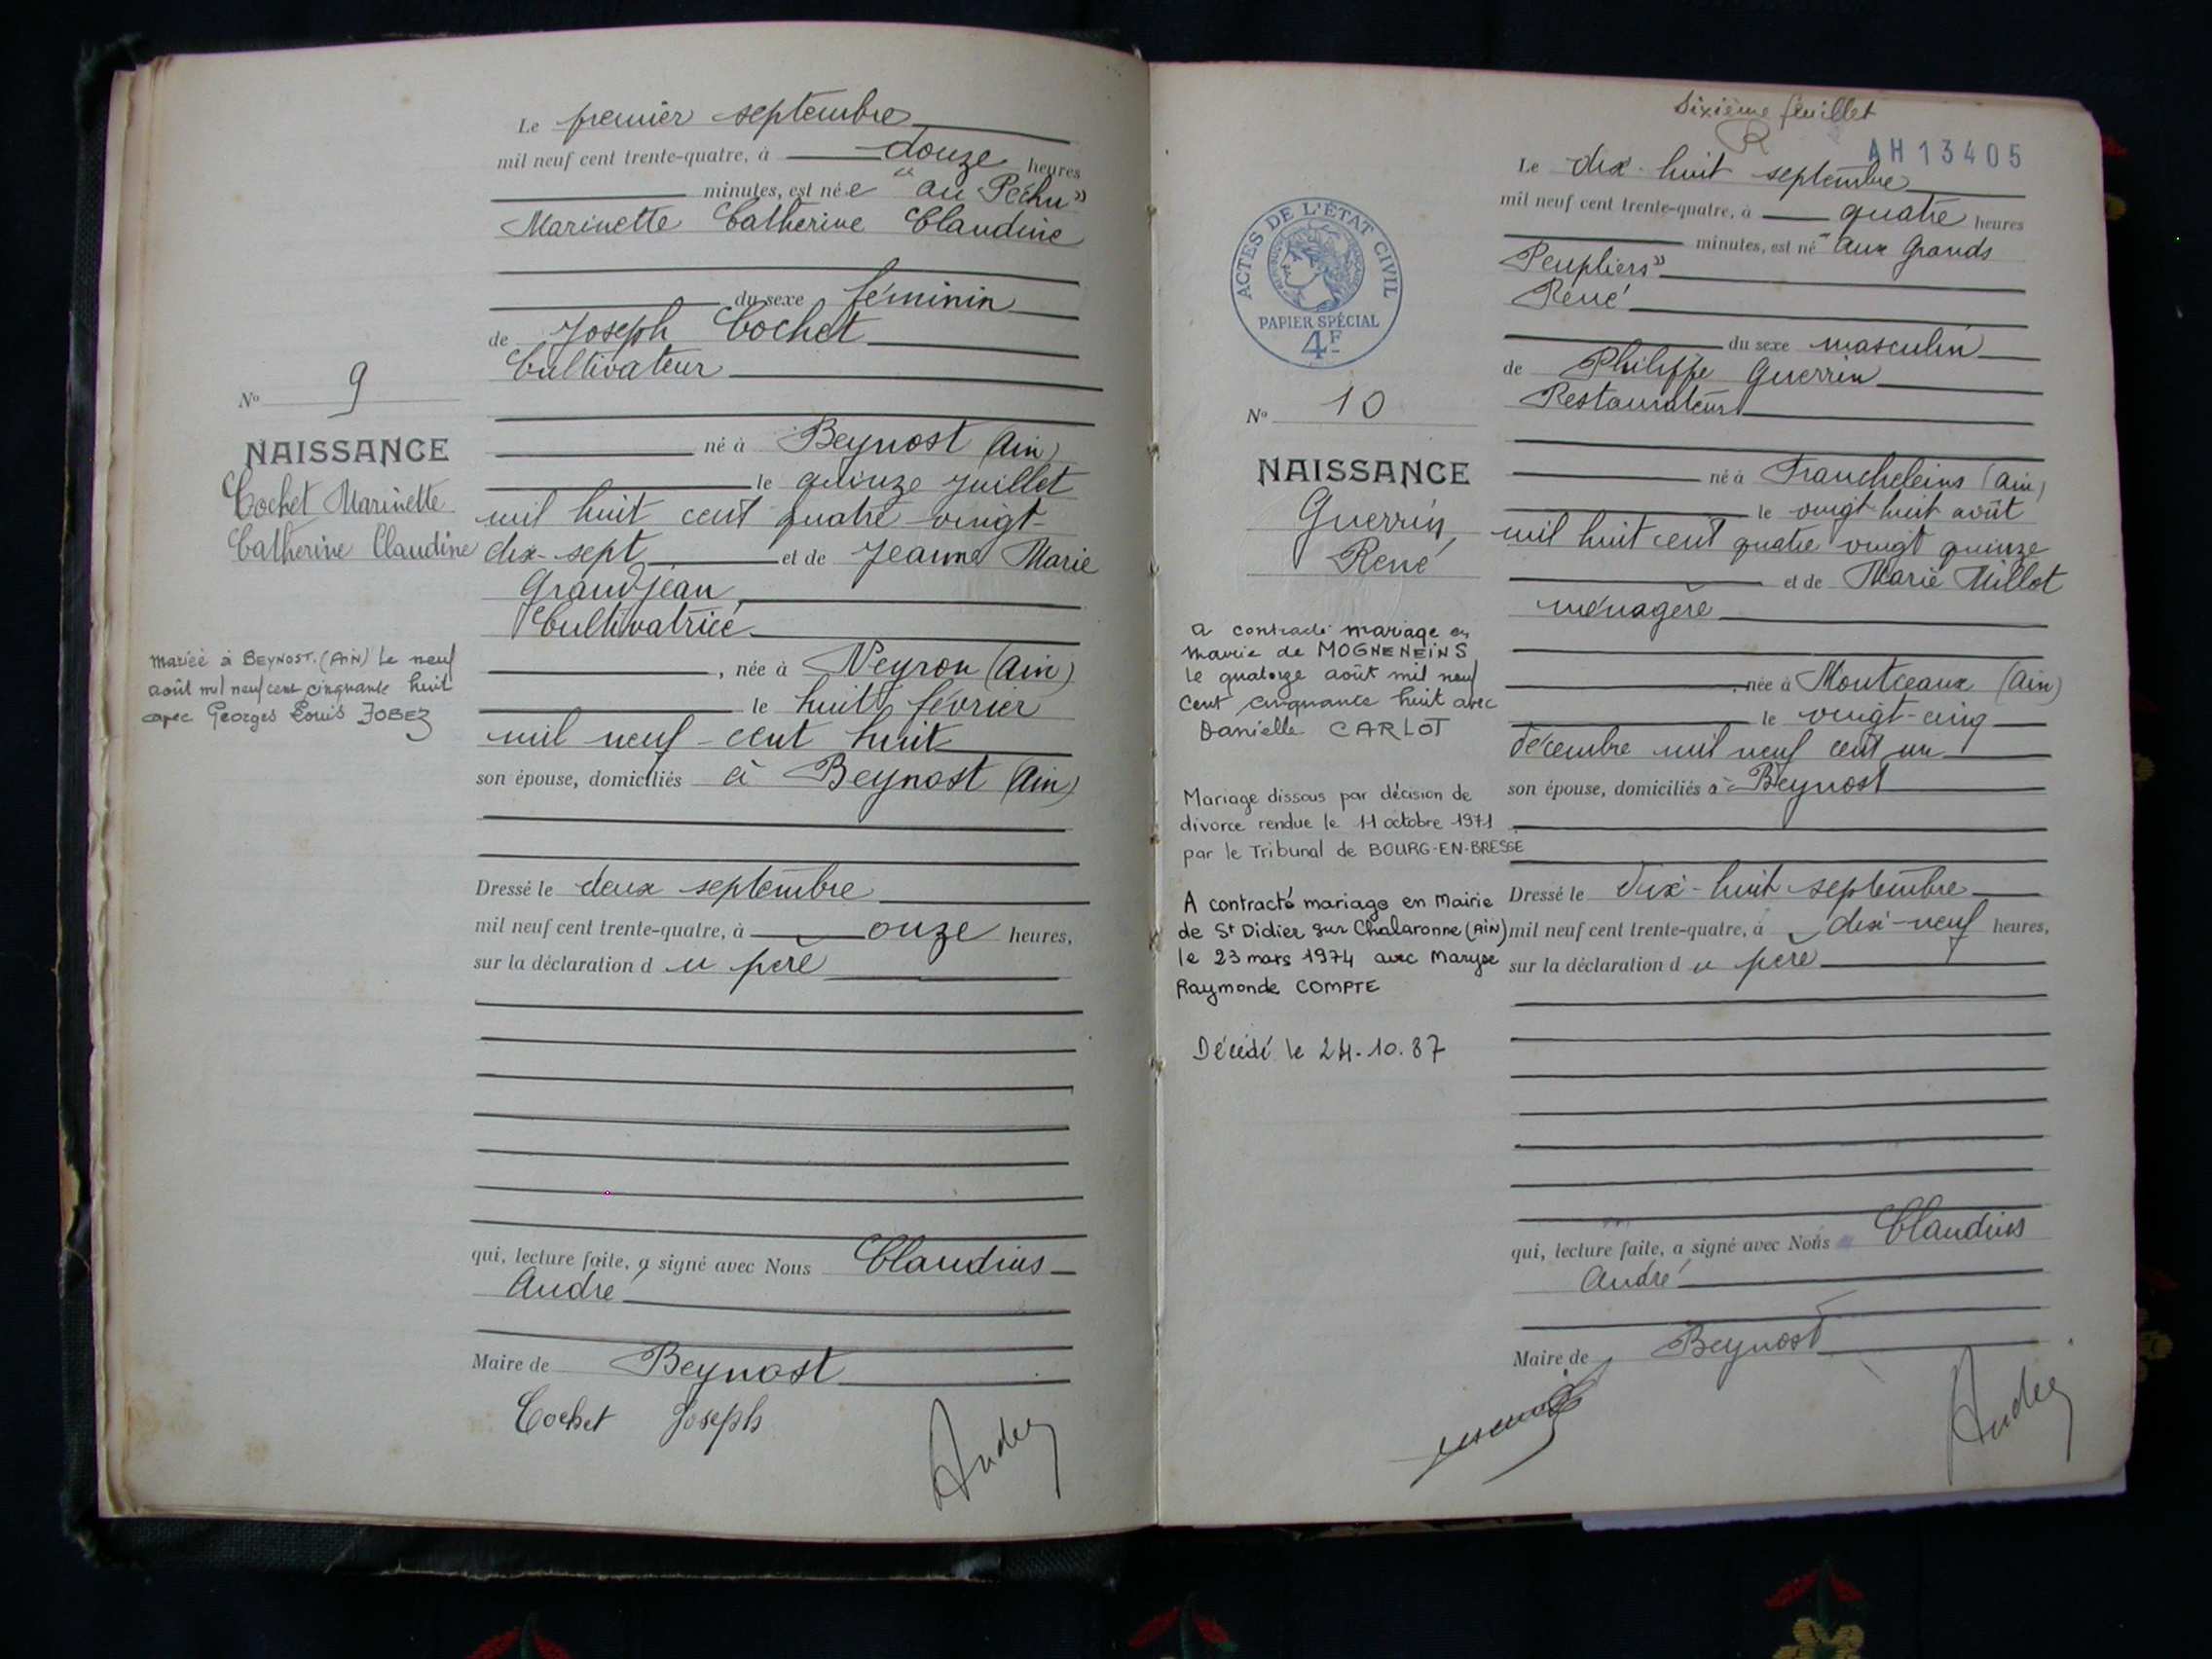 Le premier septembre
mil neuf cent trente-quatre, à douze heures
minutes, est née "au Péchu"
Marinette Catherine Claudine
du sexe féminin
de Joseph Cochet
Cultivateur
né à Beynost (Ain)
le quinze juillet
mil huit cent quatre-vingt-
dix-sept et de Jeanne Marie
Grandjean
Cultivatrice
, née à Neyron (Ain)
le huit février
mil neuf-cent huit
son épouse, domiciliés à Beynost (Ain)
Dressé le deux septembre
mil neuf cent trente-quatre, à onze heures,
sur la déclaration du père
qui, lecture faite, a signé avec Nous Claudius
André
Maire de Beynost
Cochet Joseph
André
No 9
NAISSANCE
Cochet Marinette
Catherine Claudine
Mariée à BEYNOST. (AIN) Le neuf
août mil neuf cent cinquante huit
avec Georges Louis JOBEZ
Sixième feuillet
AH13405
Le dix-huit septembre
mil neuf cent trente-quatre, à quatre heures
minutes, est né "aux Grands
Peupliers"
René
du sexe masculin
de Philippe Guerrin
Restaurateur
né à Francheleins (Ain)
le vingt huit août
mil huit cent quatre vingt quinze
et de Marie Millot
ménagère
, née à Montceaux (Ain)
le vingt-cinq
décembre mil neuf cent un
son épouse, domiciliés à Beynost
Dressé le dix-huit septembre
mil neuf cent trente-quatre, à dix-neuf heures,
sur la déclaration du père
qui, lecture faite, a signé avec Nous Claudius
André
Maire de Beynost
André
ACTES DE L'ÉTAT CIVIL
PAPIER SPÉCIAL
4F
No 10
NAISSANCE
Guerrin,
René
A contracté mariage en
mairie de MOGNENEINS
le quatorze août mil neuf
cent cinquante huit avec
Danielle CARLOT
Mariage dissous par décision de
divorce rendue le 11 octobre 1971
par le Tribunal de BOURG-EN-BRESSE
A contracté mariage en Mairie
de St Didier sur Chalaronne (AIN)
le 23 mars 1974 avec Maryse
Raymonde COMPTE
Décédé le 24.10.87